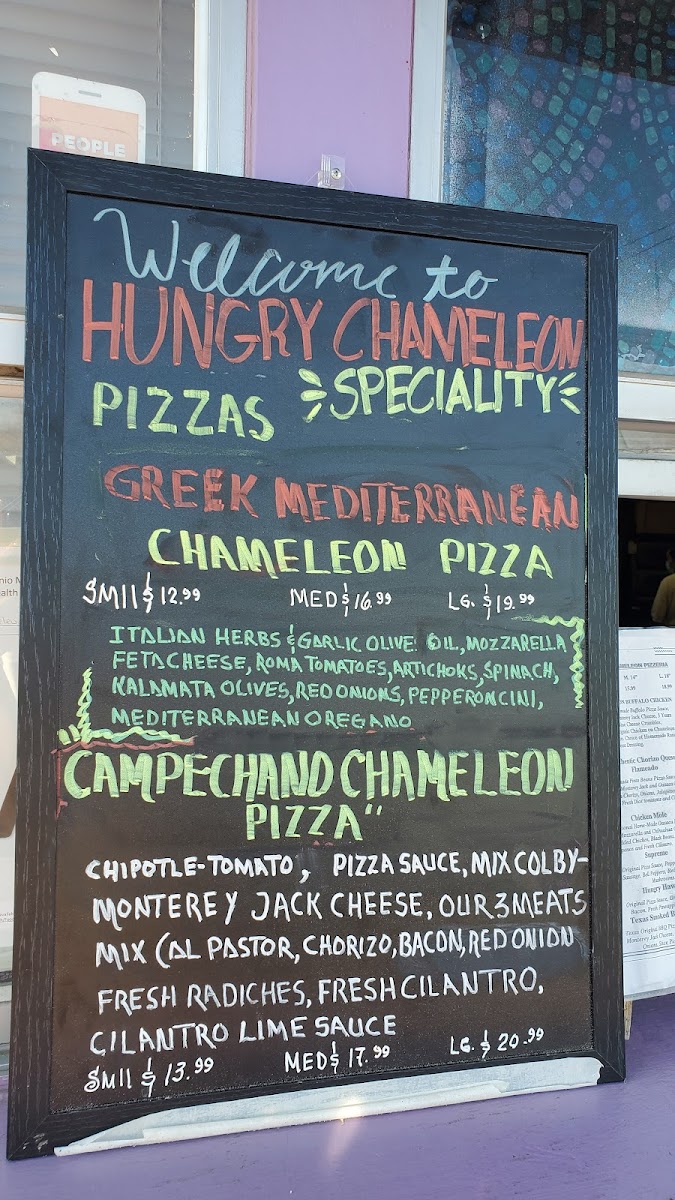 PEOPLE
Welcome to
HUNGRY CHAMELEON
PIZZAS SPECIALITY
GREEK MEDITERRANEAN
CHAMELEON PIZZA
SMll $12.99 MED $16.99 LG. $19.99
ITALIAN HERBS & GARLIC OLIVE. OIL, MOZZARELLA
FETA CHEESE, ROMA TOMATOES, ARTICHOKS, SPINACH,
KALAMATA OLIVES, RED ONIONS, PEPPERONCINI,
MEDITERRANEAN OREGANO
CAMPECHANO CHAMELEON
PIZZA"
CHIPOTLE-TOMATO, PIZZA SAUCE, MIX COLBY-
MONTEREY JACK CHEESE, OUR 3 MEATS
MIX (AL PASTOR, CHORIZO, BACON, RED ONION
FRESH RADICHES, FRESH CILANTRO,
CILANTRO LIME SAUCE
SMll $13.99 MED $17.99 LG. $20.99
PIZZERIA
BUFFALO CHICKEN
Chicken
Supreme
Hungry
Texas Smoked